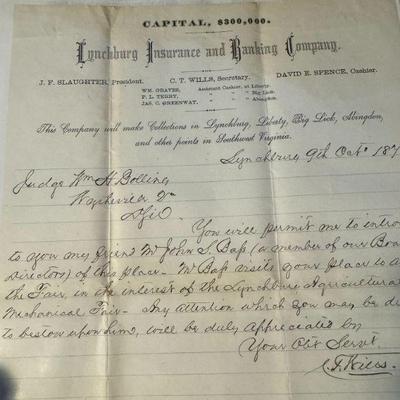 CAPITAL, $300,000.
Lynchburg Insurance and Banking Company.
J. F. SLAUGHTER, President. C. T. WILLS, Secretary. DAVID E. SPENCE, Cashier.
WM. GRAVES, Assistant Cashier, at Liberty.
P. L. TERRY, " " Big Lick.
JAS. C. GREENWAY, " " Abingdon.
This Company will make Collections in Lynchburg, Liberty, Big Lick, Abingdon,
and other points in Southwest Virginia.
Lynchburg 9th Oct. 187
Judge Wm H Bolling
Va
D Sir
You will permit me to introd
to you my friend Mr John S. Bass (a member of our Boa
Directors) of this place. Mr Bass visits your place to a
the Fair, in the interest of the Lynchburg Agricultura
Mechanical Fair. Any attention which you may be di
to bestow upon him, will be duly appreciated by
Your Obt Servt.
C. T. Wills.